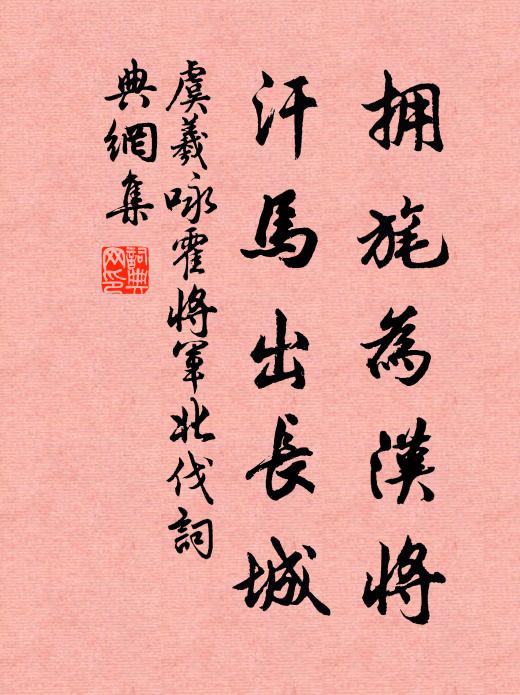 拥旄為漢將
汗馬出長城
虞羲咏霍將軍北伐詞
典網集
詞典
网印